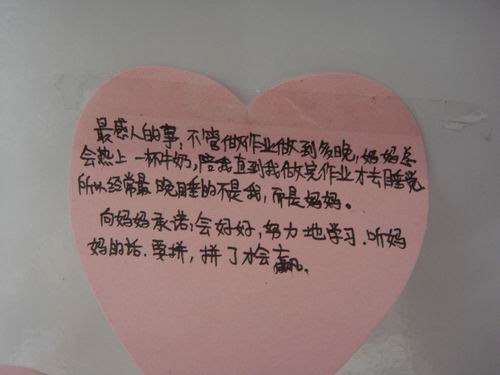 最感人的事，不管做作业做到多晚，妈妈总
会热上一杯牛奶，陪我直到我做完作业才去睡觉
所以经常最晚睡的不是我，而是妈妈。
向妈妈承诺：会好好，努力地学习.听妈
妈的话.要拼，拼了才会赢.